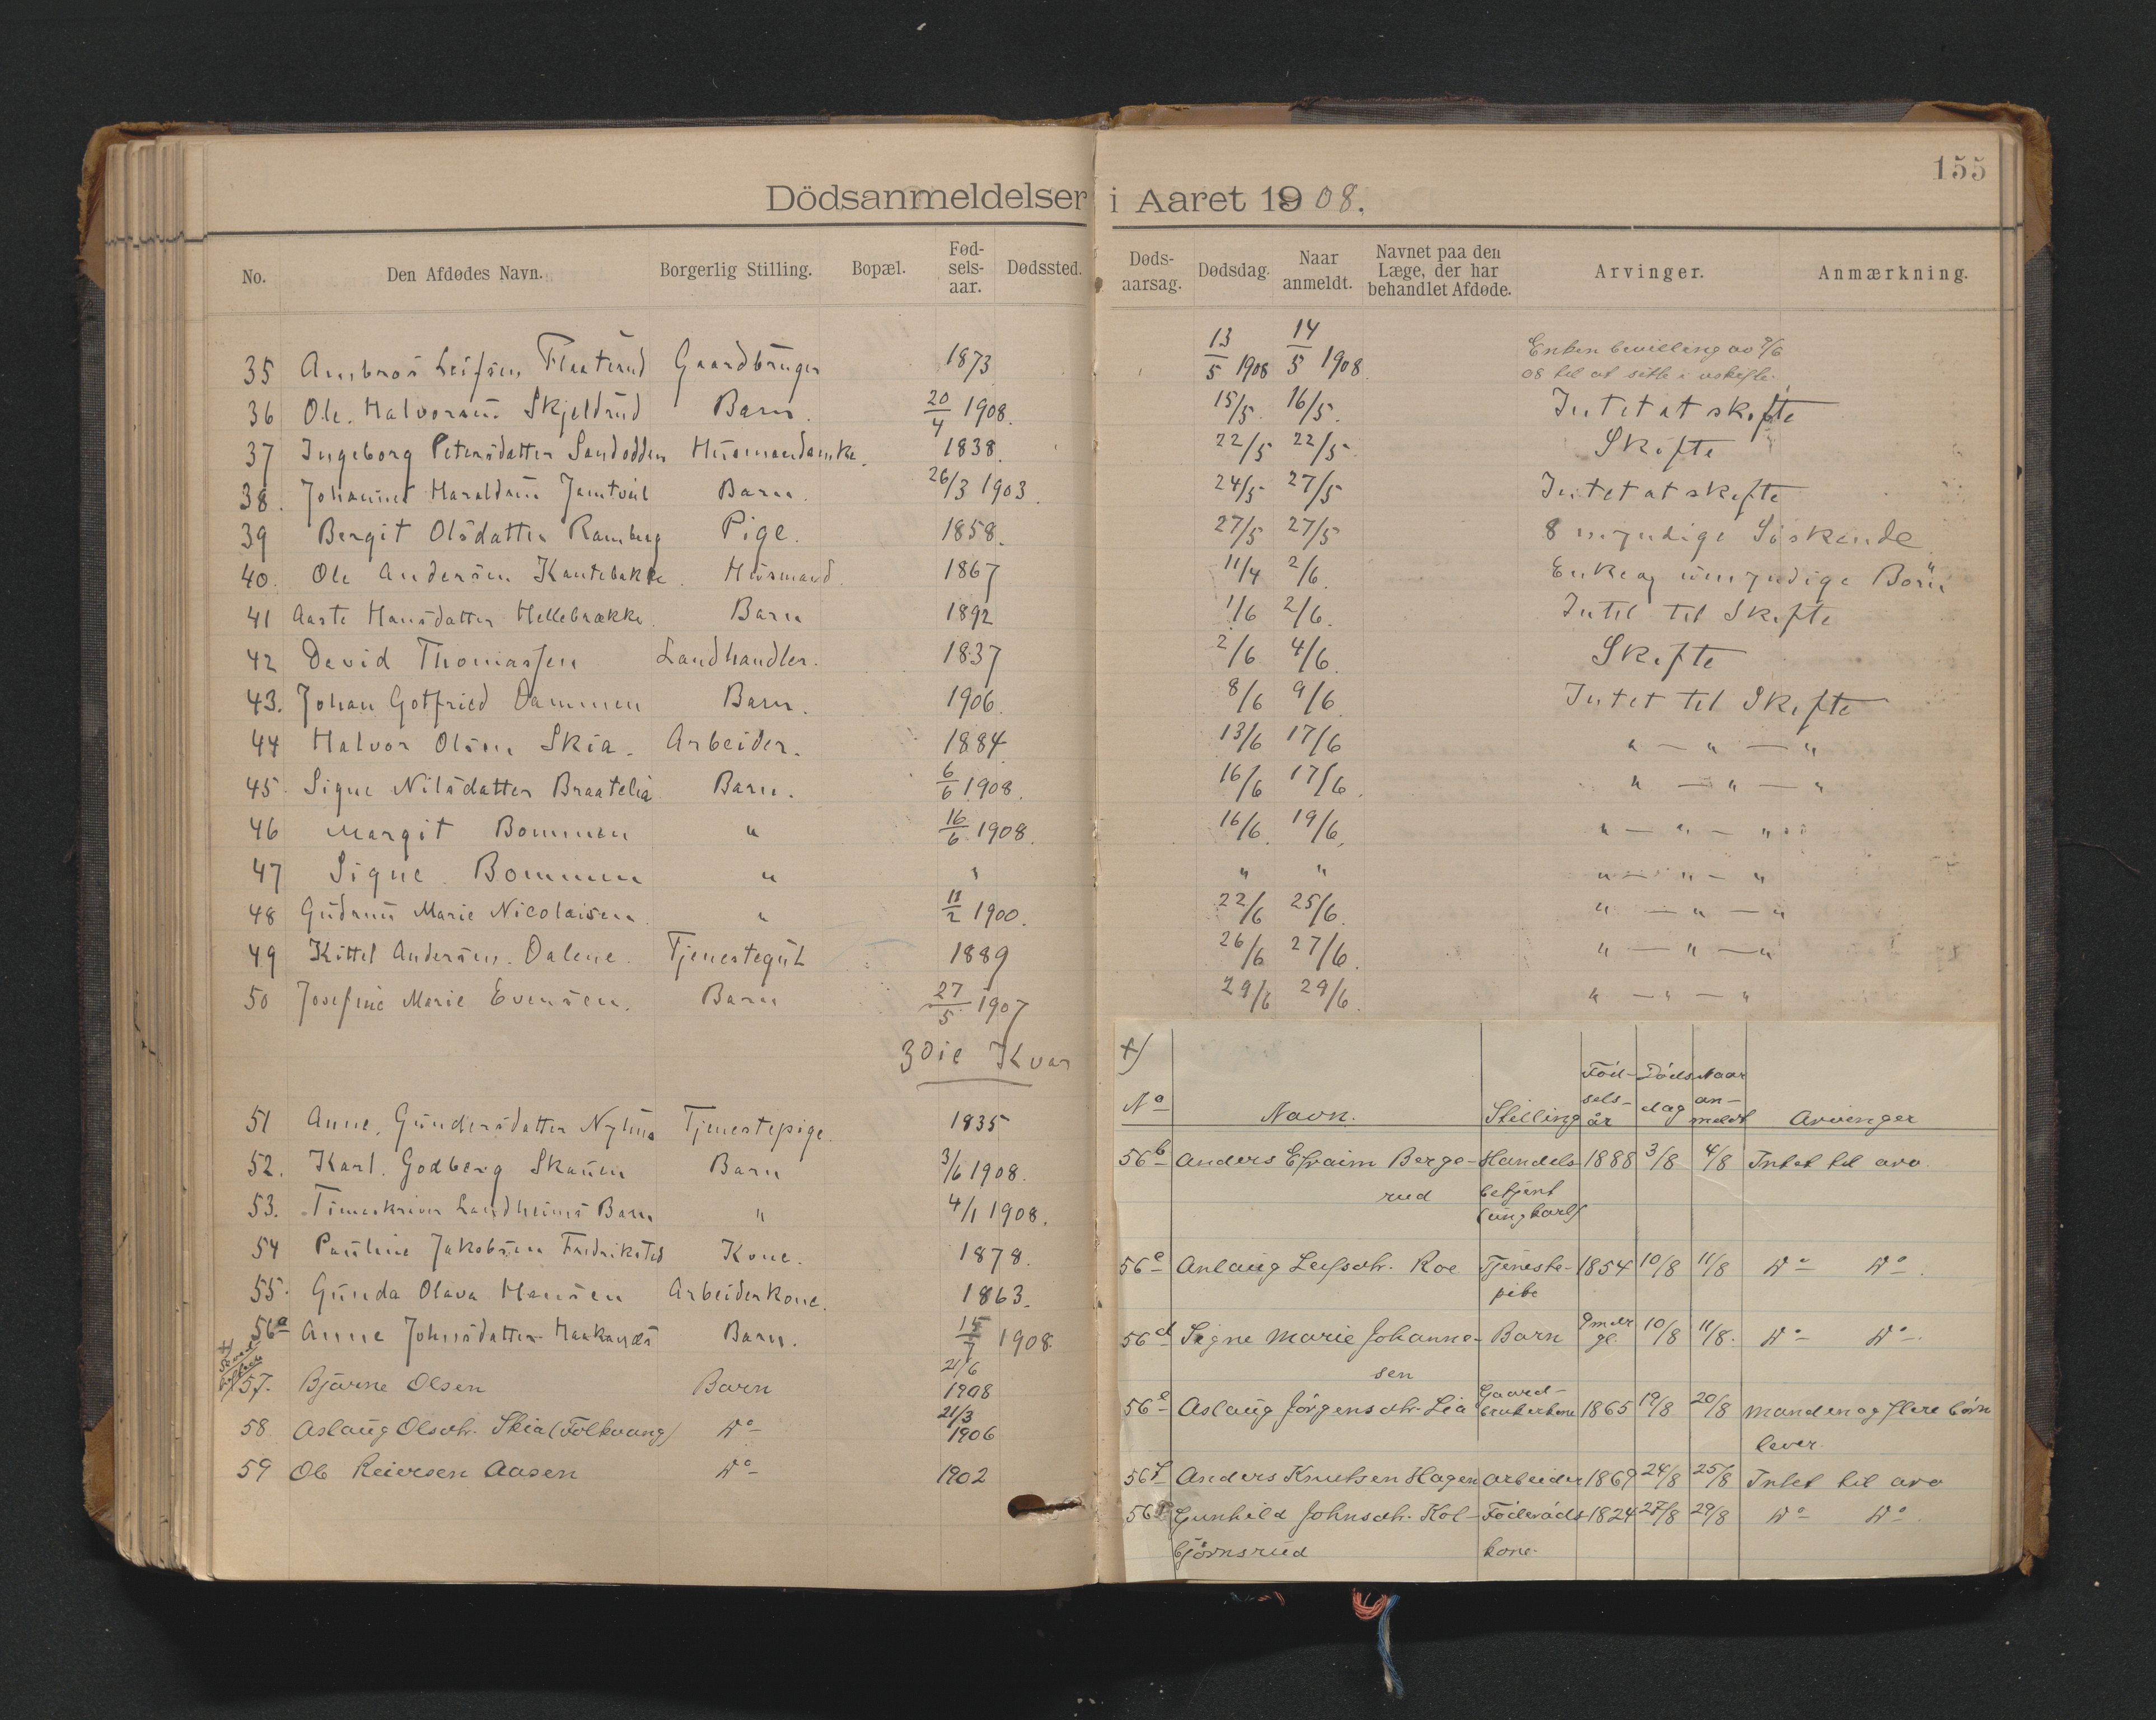 155
Dödsanmeldelser i Aaret 1908.
No. Den Afdødes Navn. Borgerlig Stilling. Bopæl. Fød-sels-aar. Dødssted. Døds-aarsag. Dødsdag. Naar anmeldt. Navnet paa den Læge, der har behandlet Afdøde. Arvinger. Anmærkning.
35 Ambros Leifsen Flaaterud Gaardbruger 1873 13/5 1908 14/5 1908 Enken bevilling av 9/6
08 til at sitte i uskifte.
36 Ole. Halvorsen Skjeldrud Barn. 20/4 1908. 15/5. 16/5. Intet at skifte
37 Ingeborg Petersdatter Sandodden Husmandsenke. 1838. 22/5 22/5. Skifte
38. Johannes Haraldsen Jamtveit Barn. 26/3 1903. 24/5 27/5 Intet at skifte
39 Bergit Olsdatter Ramberg Pige. 1858. 27/5 27/5 8 myndige Söskende
40. Ole Andersen Kantebakke. Husmand. 1867 11/4 2/6. Enke og umyndige Börn
41 Aaste Hansdatter Hellebrække. Barn 1892 1/6 2/6. Intet til Skifte
42 David Thomassen Landhandler. 1837 2/6 4/6. Skifte
43. Johan Gotfried Dammen Barn. 1906. 8/6 9/6. Intet til Skifte
44 Halvor Olsen Skia. Arbeider. 1884. 13/6 17/6 " — " — "
45. Signe Nilsdatter Braatelia Barn. 6/6 1908. 16/6 17/6. " — " — "
46 Margit Bommen " 16/6 1908. 16/6. 19/6. " — " — "
47 Signe. Bommen " " " " " — " — "
48 Gudrun Marie Nicolaisen. " 11/2 1900. 22/6 25/6. " — " — "
49 Kittel Andersen. Dalene. Tjenestegut 1889 26/6 27/6. " — " — "
50 Josefine Marie Evensen. Barn 27/5 1907 29/6 29/6. " — " — "
3die Kvar
51 Anne, Gundersdatter Nyhus Tjenestepige. 1835
52. Karl. Godberg Skauen Barn 3/6 1908.
53. Timeskriver Landheims Barn " 4/1 1908.
54 Pauline Jakobsen Fredriksted Kone. 1878.
55. Gunda Olava Hansen Arbeiderkone. 1863.
56a Anne Johnsdatter Haakanæs Barn. 15/7 1908.
+)
57. Bjarne Olsen Barn 21/6 1908
58 Aslaug Olsdtr. Skia (Folkvang) Do 21/3 1906
59 Ole Reiersen Aasen Do 1902
+)
No Navn. Stilling Föd-sels-år Dödsdag Naar an-meldt Arvinger
56b Anders Efraim Berge- Handels 1888 3/8 4/8 Intet til arv.
rud betjent
(ungkarl)
56c Anlaug Leifsdtr. Roe Tjeneste- 1854 10/8 11/8 Do Do.
pike
56d Signe Marie Johanne- Barn 9 mdr gl. 10/8 11/8. Do Do.
sen
56e Aslaug Jörgensdtr. Lia Gaard-brukerkone 1865 19/8 20/8 Manden og flere börn
lever.
56f Anders Knutsen Hagen arbeider 1869 24/8 25/8 Intet til arv
56g Gunhild Johnsdtr. Kol- Föderåds 1824 27/8 29/8 Do Do.
björnsrud kone.